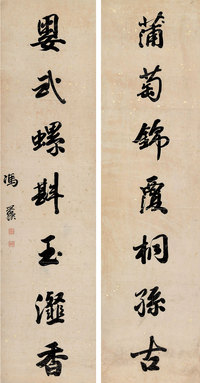 蒲萄錦覆桐孫古
嬰武螺斟玉瀣香
馮